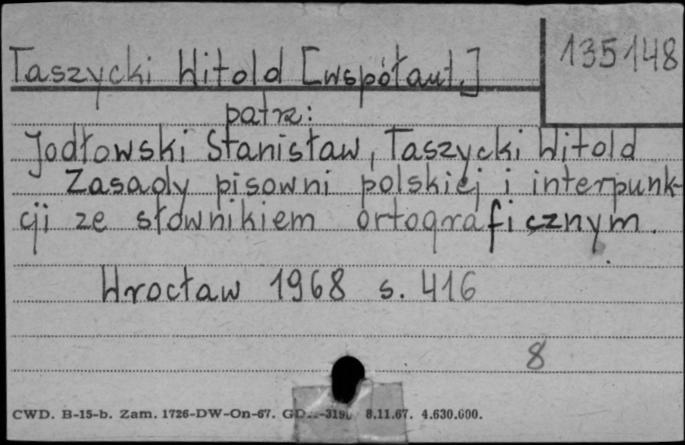 Taszycki Witold [współaut.] 135148
patrz:
Jodłowski Stanisław, Taszycki Witold
Zasady pisowni polskiej i interpunk-
cji ze słownikiem ortograficznym.
Wrocław 1968 s. 416
8
CWD. B-15-b. Zam. 1726-DW-On-67. 8.11.67. 4.630.600.